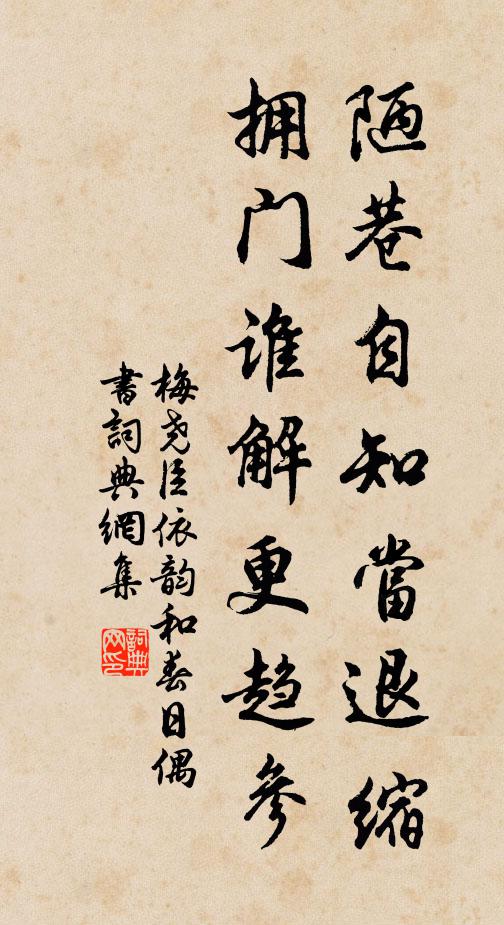 陋巷自知當退縮
拥门谁解更趋參
梅尧臣依韵和春日偶
書詞典網集
詞典网印